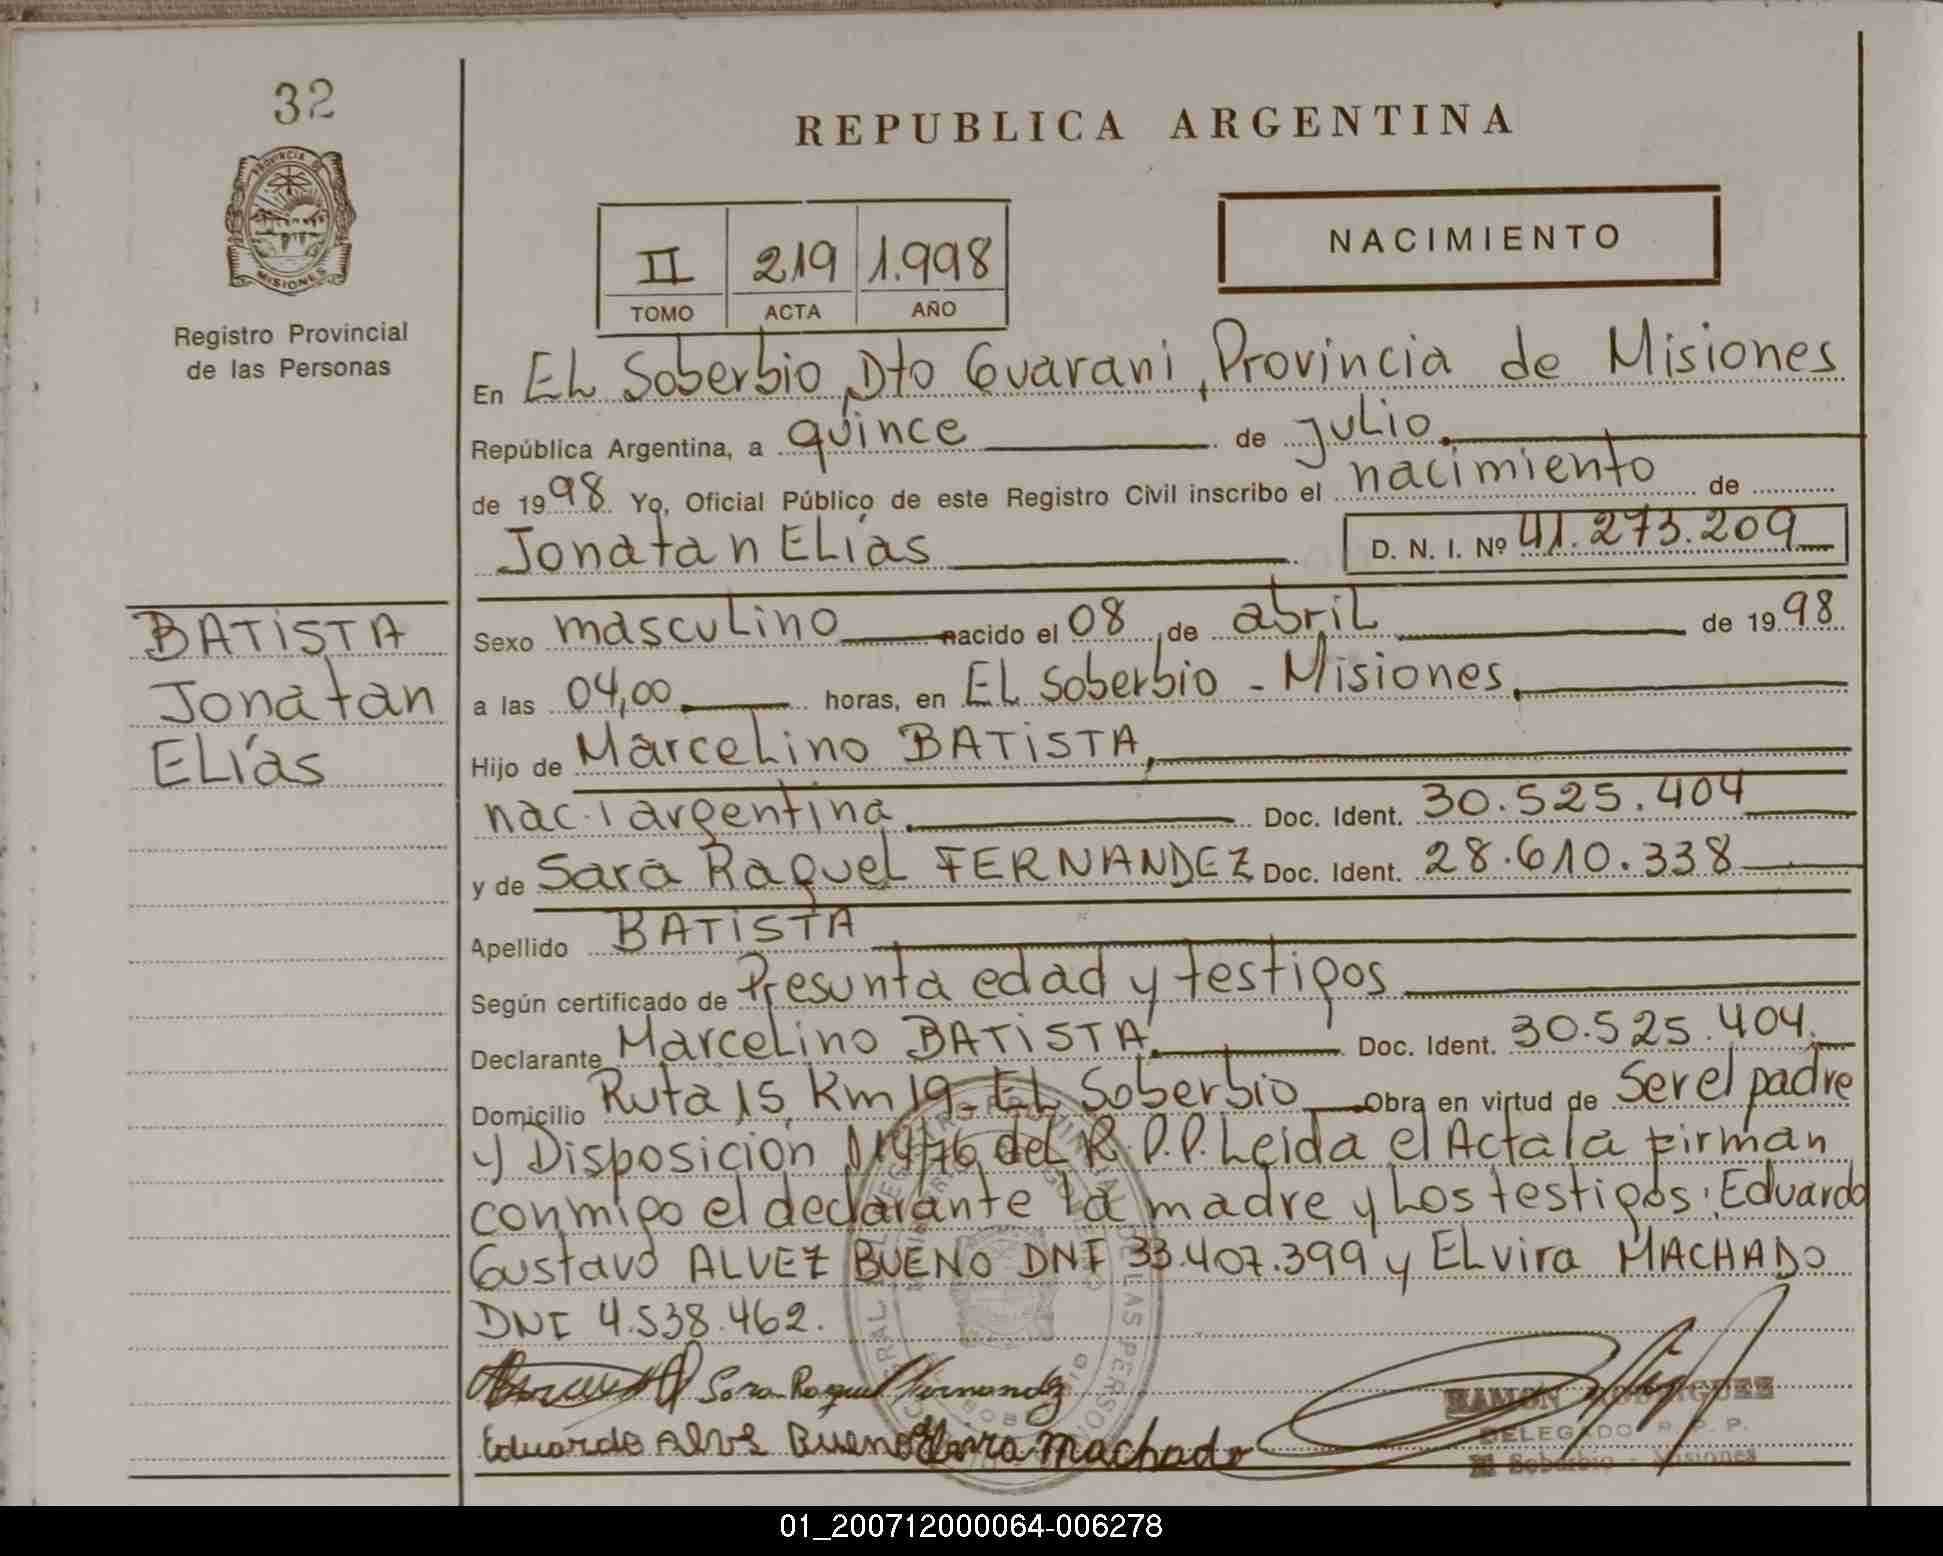 32
PROVINCIA DE
MISIONES
Registro Provincial
de las Personas
BATISTA
Jonatan
ELías
REPUBLICA ARGENTINA
II 219 1.998
TOMO ACTA AÑO
NACIMIENTO
En EL Soberbio, Dto Guarani, Provincia de Misiones
República Argentina, a quince de julio
de 1998 Yo, Oficial Público de este Registro Civil inscribo el nacimiento de
Jonatan ELías D. N. I. Nº 41.273.209
Sexo masculino nacido el 08 de abril de 1998
a las 04,00 horas, en EL Soberbio - Misiones,
Hijo de Marcelino BATISTA,
nac. argentina Doc. Ident. 30.525.404
y de Sara Raquel FERNANDEZ Doc. Ident. 28.610.338
Apellido BATISTA
Según certificado de Presunta edad y testigos
Declarante Marcelino BATISTA Doc. Ident. 30.525.404.
Domicilio Ruta 15 Km 19- EL Soberbio Obra en virtud de ser el padre
y Disposición del R.P.P. Leida el Acta la firman
conmigo el declarante la madre y Los testigos: Eduardo
Gustavo ALVEZ BUENO DNI 33.407.399 y ELvira MACHADO
DNI 4.538.462.
Sara Raquel Fernandez
Eduardo Alvez Bueno Elvira Machado
RAMON RODRIGUEZ
DELEGADO R. P. P.
El Soberbio - Misiones
01_200712000064-006278